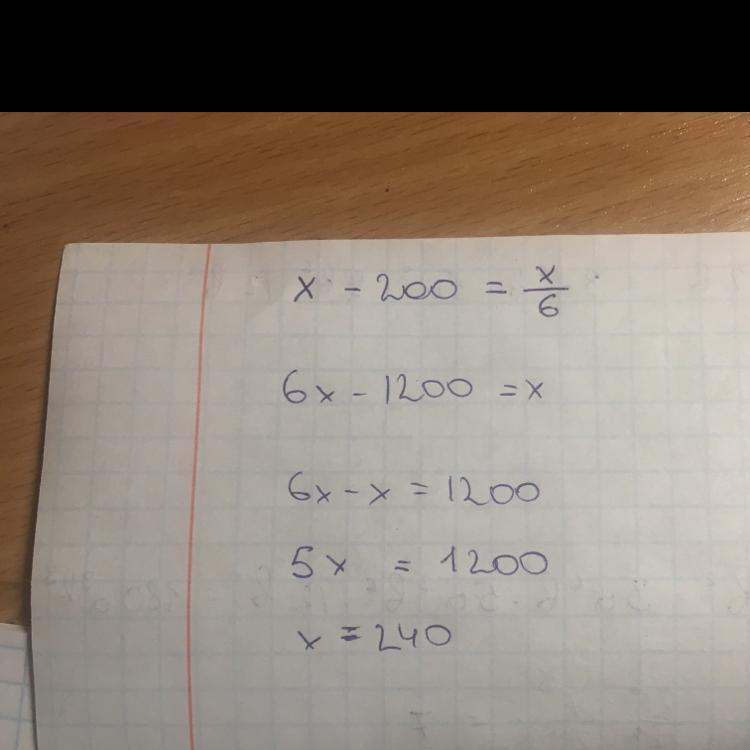 x - 200 = x/6
6x - 1200 = x
6x - x = 1200
5x = 1200
x = 240